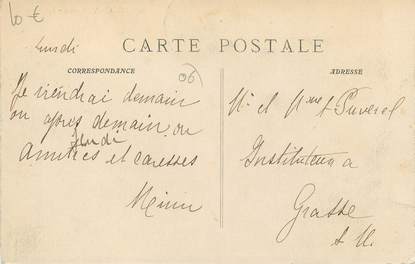 10 €
Lundi
CARTE POSTALE
CORRESPONDANCE
06
ADRESSE
Je viendrai demain
ou après demain ou
jeudi
amitiés et caresses
Mimi
Mr et Mme
Instituteur à
Grasse
A M.